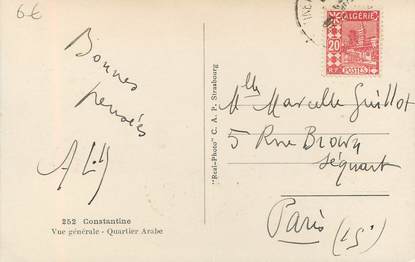 6€
Bonnes
pensées
252 Constantine
Vue générale - Quartier Arabe
"Real-Photo" C. A. P. Strasbourg
ALGÉRIE
20
R.F. POSTES
Mlle Marcelle Guillot
5 Rue Brown
Séquart
Paris (15e)